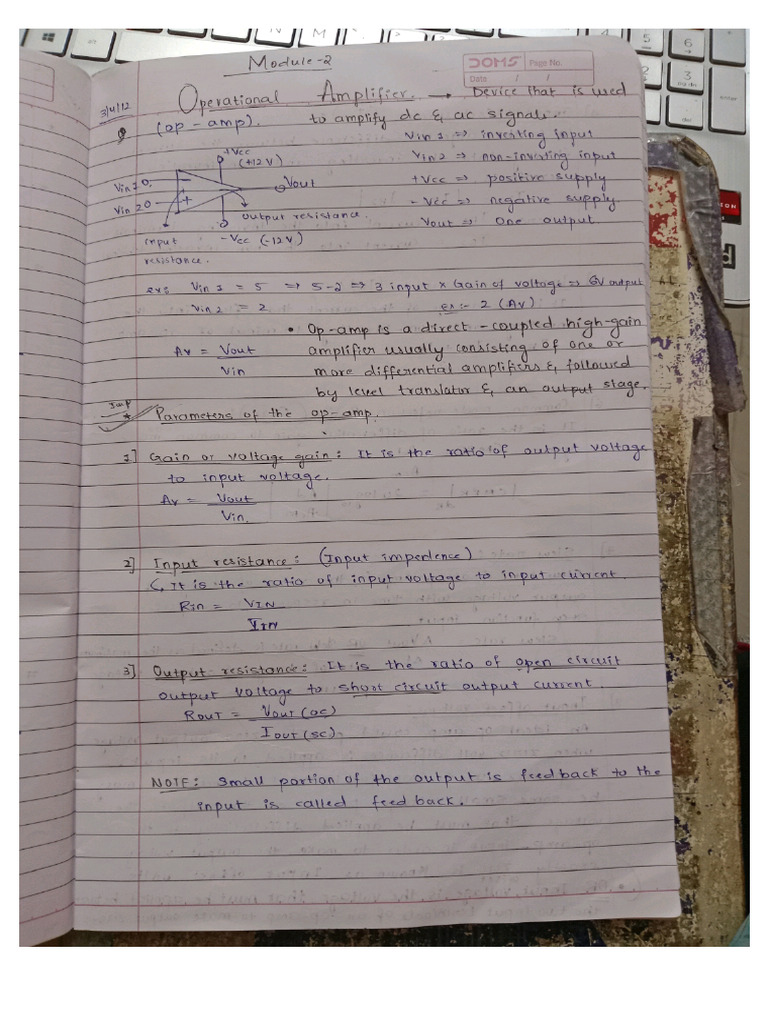 Module-2
DOMS Page No.
Date / /
3/4/12
Operational Amplifier. → Device that is used
(op-amp). to amplify dc & ac signals.
Vin 1 => inverting input
Vin 2 => non-inverting input
+Vcc => positive supply
-Vcc => negative supply
Vout => one output
+Vcc
(+12V)
Vin 1
Vin 2
−
+
Vout
output resistance.
input
resistance.
-Vcc (-12V)
ex: Vin 1 = 5 => 5-2 => 3 input × Gain of voltage => 6V output
Vin 2 = 2 ex:- 2 (Av)
• Op-amp is a direct-coupled high-gain
amplifier usually consisting of one or
more differential amplifiers & followed
by level translator & an output stage.
Av = Vout
Vin
Imp
* Parameters of the op-amp.
1] Gain or voltage gain: It is the ratio of output voltage
to input voltage.
Av = Vout
Vin.
2] Input resistance: (Input impedence)
It is the ratio of input voltage to input current.
Rin = VIN
IIN
3] Output resistance: It is the ratio of open circuit
output voltage to short circuit output current.
ROUT = VOUT (OC)
IOUT (SC)
NOTE: Small portion of the output is feedback to the
input is called feed back.